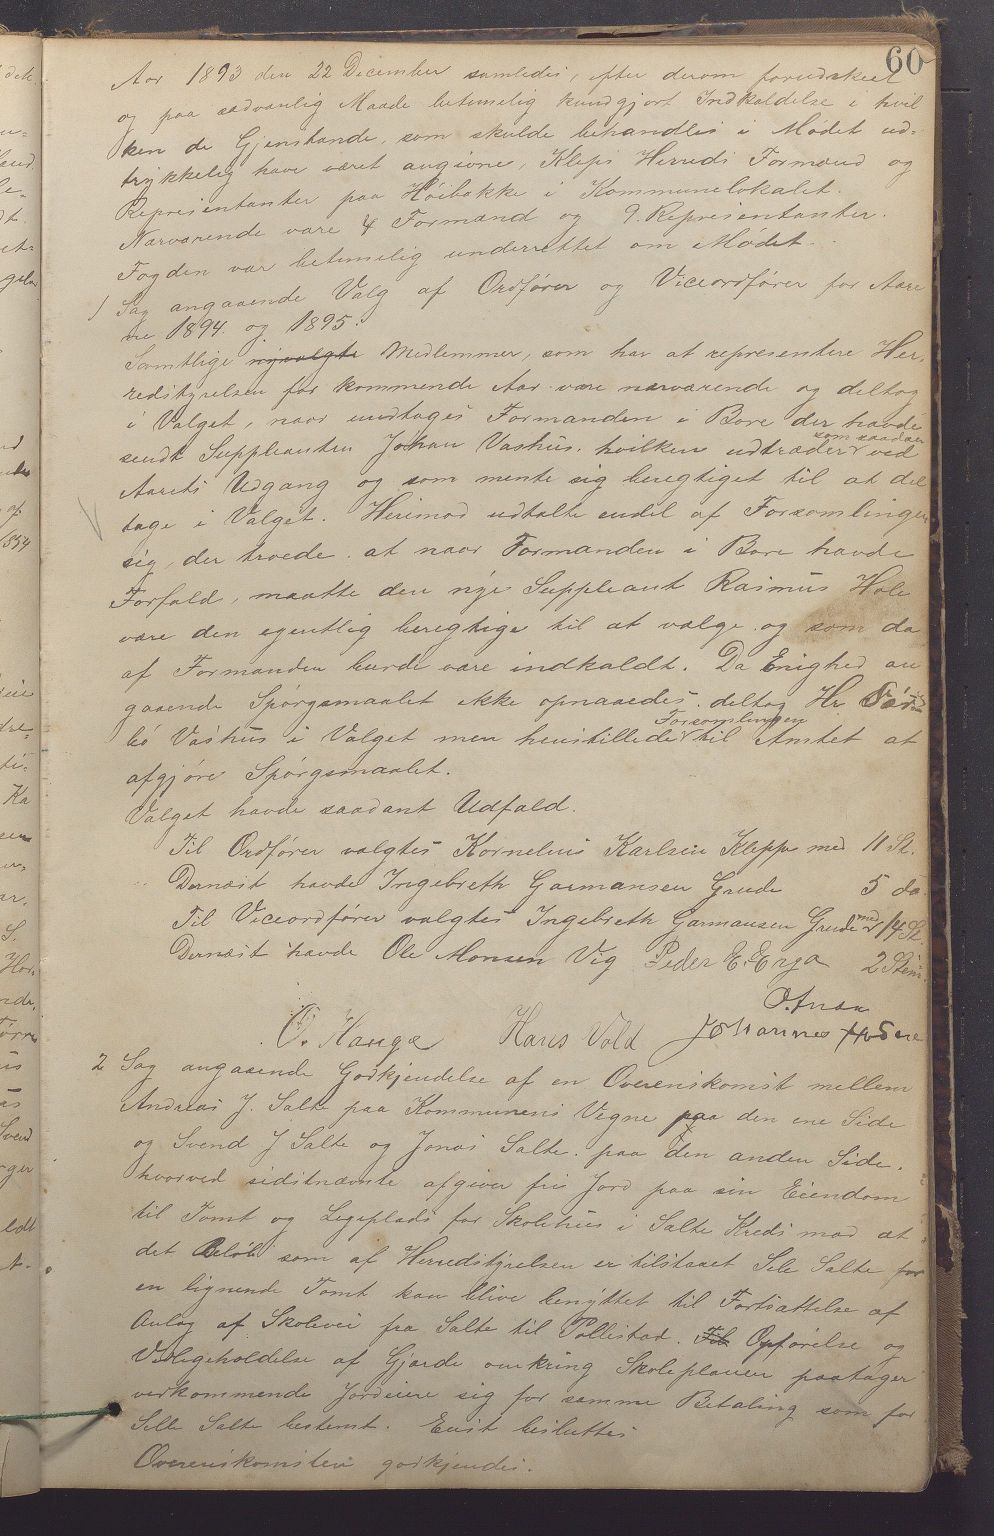 60
Aar 1893 den 22 December samledes, efter derom forudskeet
og paa sædvanlig Maade betimelig kundgjort Indkaldelse i hvil
ken de Gjenstande, som skulde behandles i Mødet ud-
trykkelig have været angivne, Kleps Herreds Formænd og
Repræsentanter paa Høibakke i Kommunelokalet.
Nærværende vare 4 Formænd og 9. Repræsentanter.
Fogden var betimelig underrettet om Mødet.
1 Sag angaaende Valg af Ordfører og Viceordfører for Aare
ne 1894 og 1895.
Samtlige nyvalgte Medlemmer, som har at repræsentere Her
redstyrelsen for kommende Aar vare nærværende og deltog
i Valget, naar undtages Formanden i Bore der havde
sendt Suppleanten Johan Vashus, hvilken udtræder som saadan ved
Aarets Udgang og som mente sig beregtiget til at del
tage i Valget. Herimod udtalte endel af Forsamlingen
sig, der troede at naar Formanden i Bore havde
Forfald, maatte den nye Suppleant Rasmus Hole
være den egentlig beregtige til at vælge og som da
af Formanden burde være indkaldt. Da Enighed an
gaaende Spørgsmaalet ikke opnaaedes deltog Hr
bø Vashus i Valget men henstillede Forsamlingen til Amtet at
afgjøre Spørgsmaalet.
Valget havde saadant Udfald.
Til Ordfører valgtes Kornelius Karlsen Kleppe med 11 St.
Dernæst havde Ingebreth Garmansen Grude 5 do
Til Viceordfører valgtes Ingebreth Garmansen Grude med 14 St.
Dernæst havde Ole Monsen Vig Peder E. Erga 2 Stem.
O. Hauge Hans Vold Johannes
2 Sag angaaende Godkjendelse af en Overenskomst mellem
Andreas J. Salte paa Kommunens Vegne paa den ene Side
og Svend J Salte og Jonas Salte paa den anden Side.
hvorved sidstnævnte afgiver fri Jord paa sin Eiendom
til Tomt og Legeplads for Skolehus i Salte Kreds mod at
det Beløb som af Herredstyrelsen er tilstaaet Sele Salte for
en lignende Tomt kan blive benyttet til Fortsættelse af
Anlæg af Skolevei fra Salte til Pollestad. Til Opførelse og
Vedligeholdelse af Gjærde omkring Skoleplanen paatager
vedkommende Jordeiere sig for samme Betaling som for
Sele Salte bestemt. Enst besluttes
Overenskomsten godkjendes.